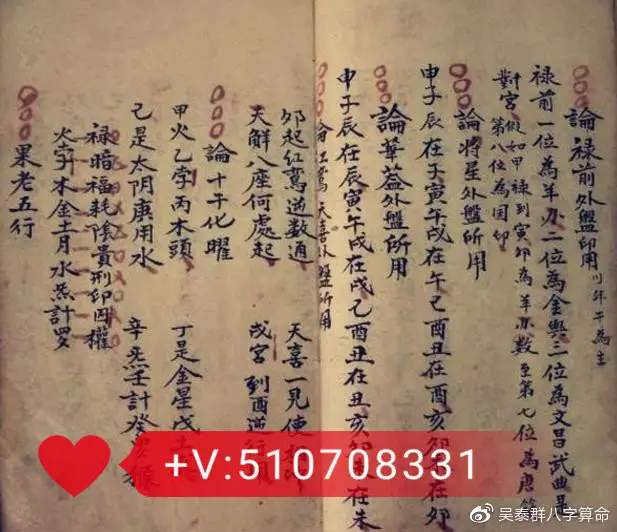 論禄前外盤印用 以年干為主
禄前一位為羊刃二位為金輿三位為文昌武曲是
對宮 第八位為国印
假如甲禄到寅卯為羊刃数至第七位為唐符
論将星外盤所用
申子辰在子寅午戌在午巳酉丑在酉亥卯未在卯
論華蓋外盤所用
申子辰在辰寅午戌在戌巳酉丑在丑亥卯未在未
論红鸞天喜外盤所用
卯起红鸞逆数通 天喜一見使
天解八座何處起 戌宮到酉逆
論十干化曜
甲火乙孛丙木頭 丁是金星戊土
己是太阴庚用水 辛炁壬計癸羅
禄暗福耗陰貴刑印囚權
火孛木金土月水炁計罗
果老五行
+V:510708331
吴泰群八字算命